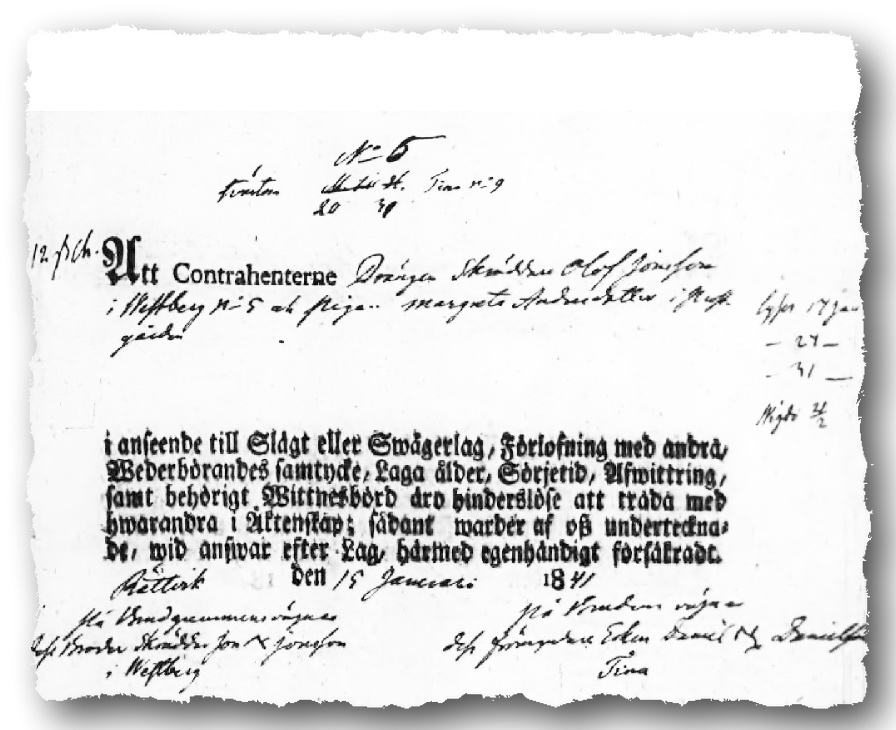 No 5
Tina No 9
20
12 sk
Att Contrahenterne Drängen Skräddare Olof Jönsson
i Westberg No 5 och Pigan margreta Andersdotter i
gärdet
Lyses 17 Jan
- 24 -
- 31 -
Wigde
i anseende till Slägt eller Swägerlag, Förlofning med andra,
Wederbörandes samtycke, Laga ålder, Sörjetid, Afwittring,
samt behörigt Wittnesbörd äro hinderslöse att träda med
hwarandra i Äktenskap; sådant warder af oß undertecknade
de, wid answar efter Lag, härmed egenhändigt försäkradt.
Rättvik den 15 Januari 1841
På Brudgummens vägnar
dess Broder Skräddar Jon Jönsson
i Westberg
På Brudens vägnar
dess Daniel Danielsson
Tina